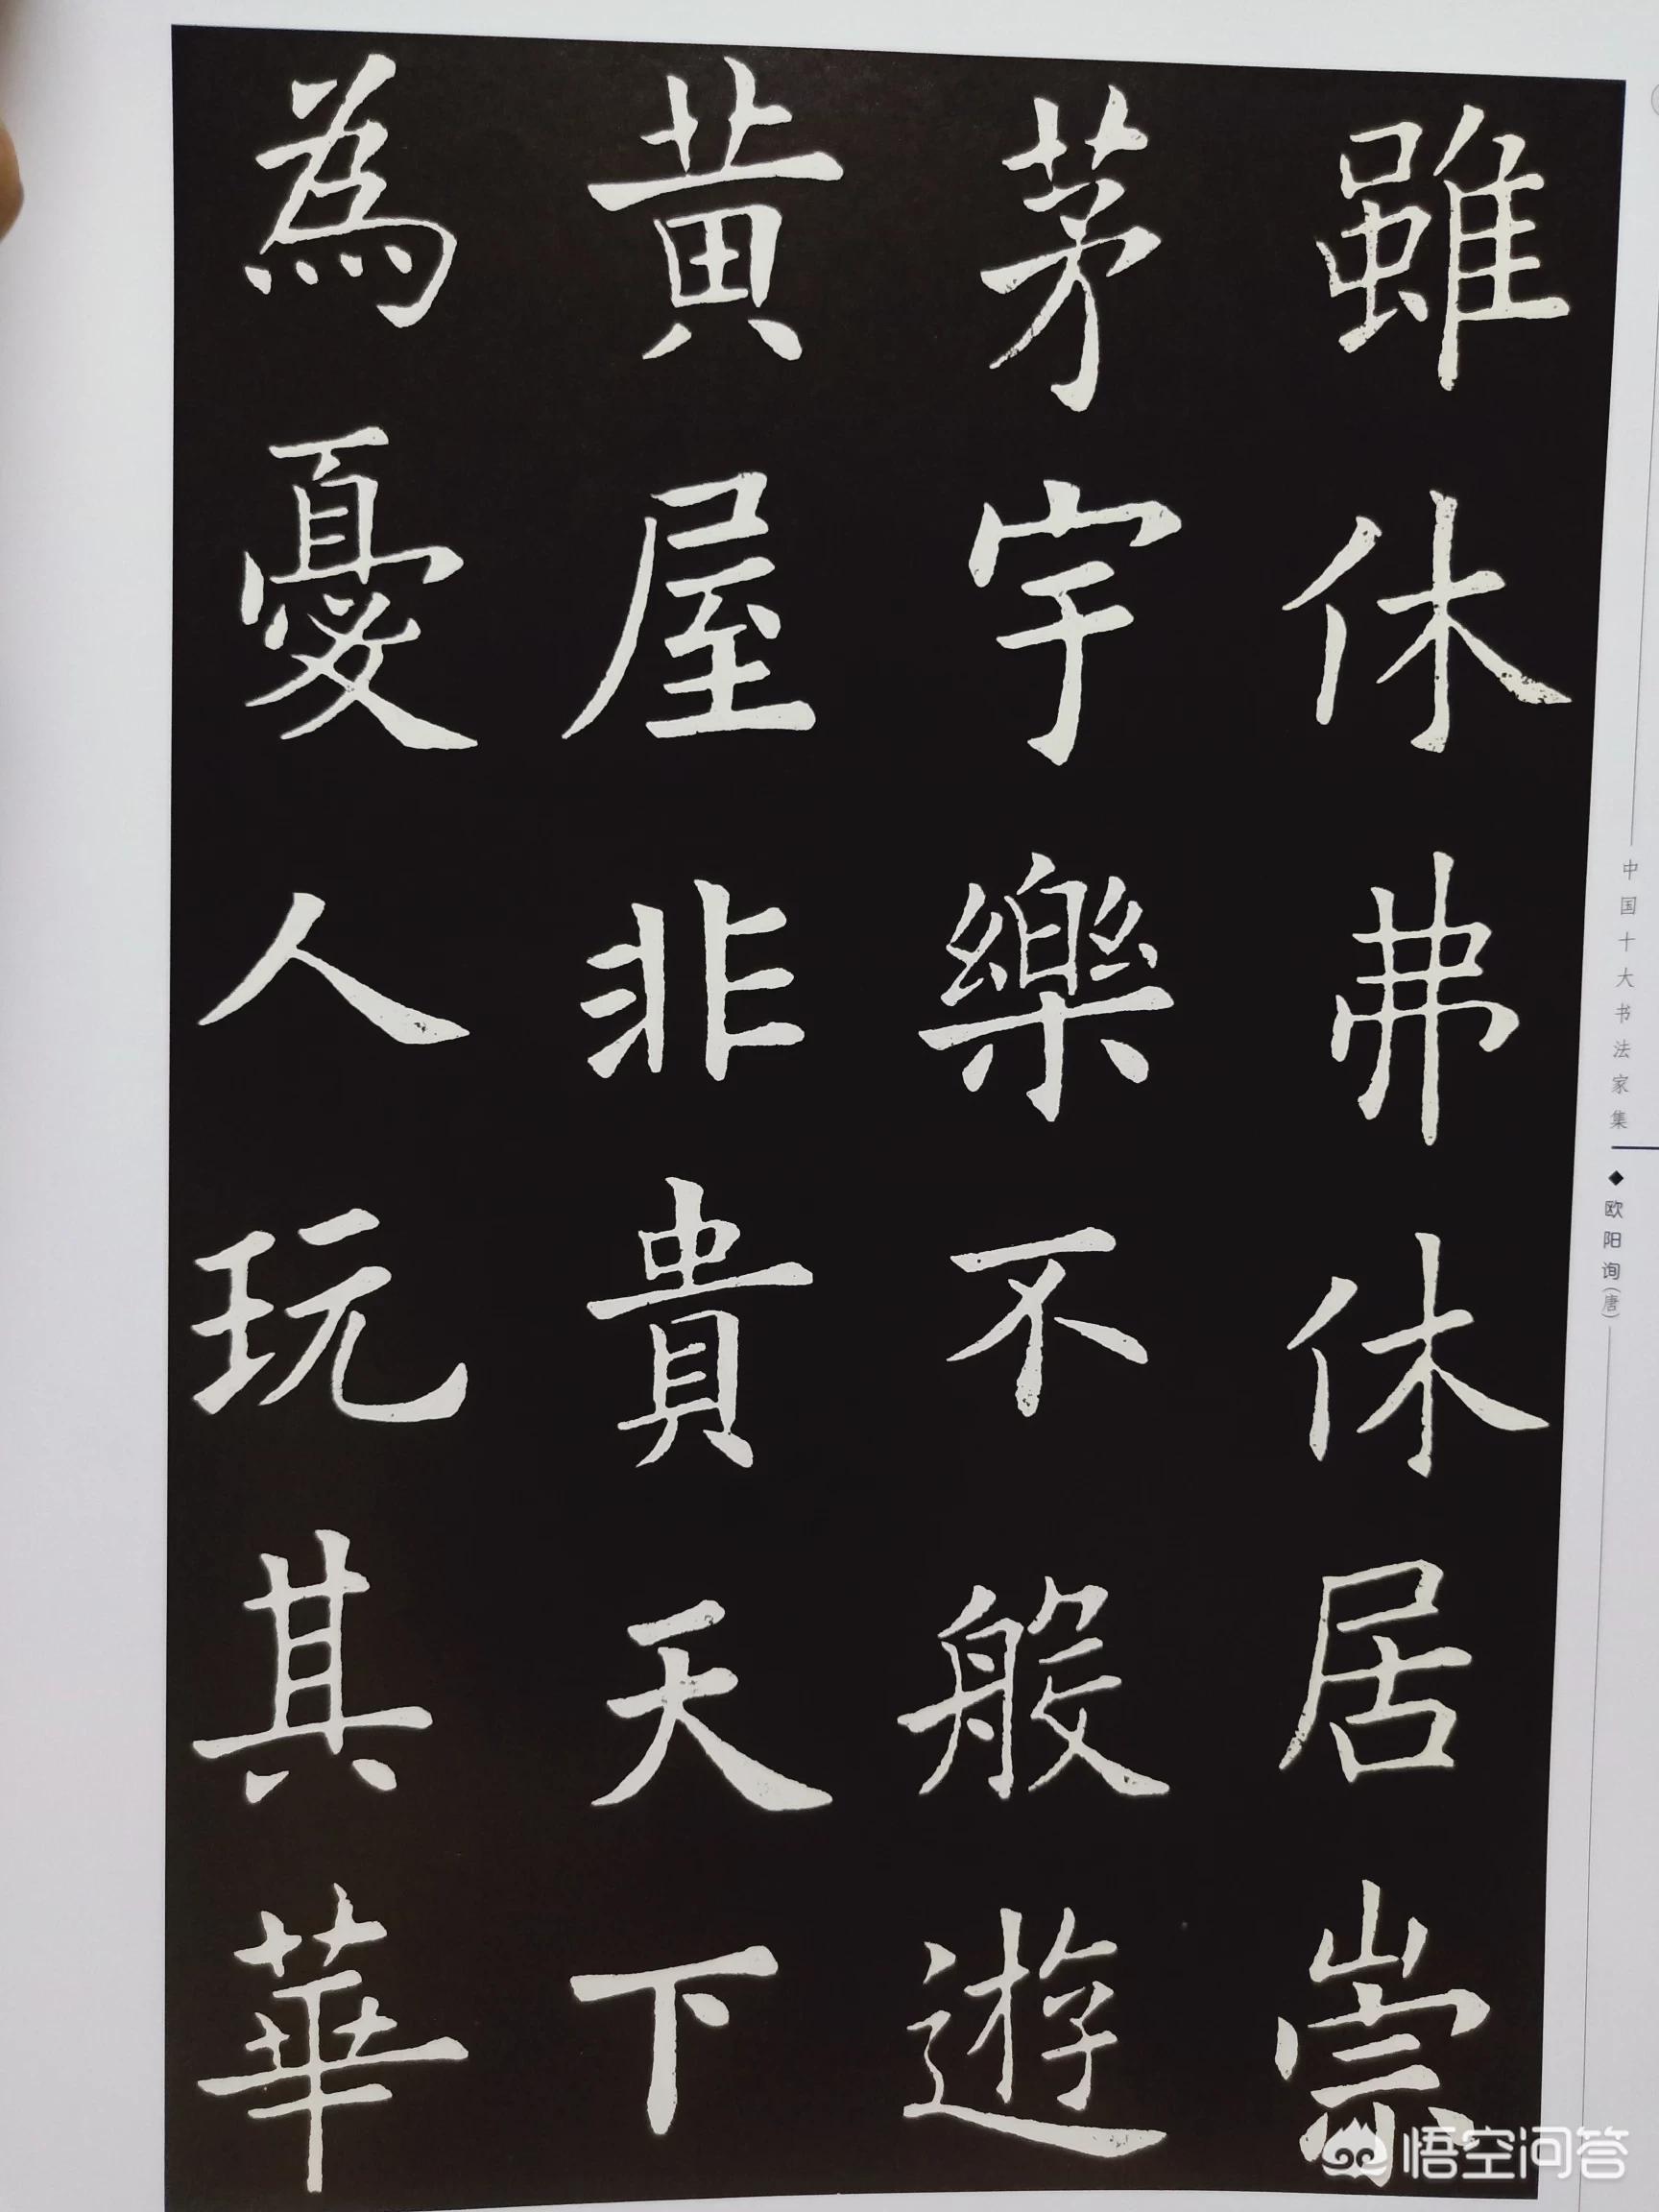 雖休弗休居崇
茅宇樂不般遊
黄屋非貴天下
為憂人玩其華
中国十大书法家集
◆欧阳询(唐)
悟空问答